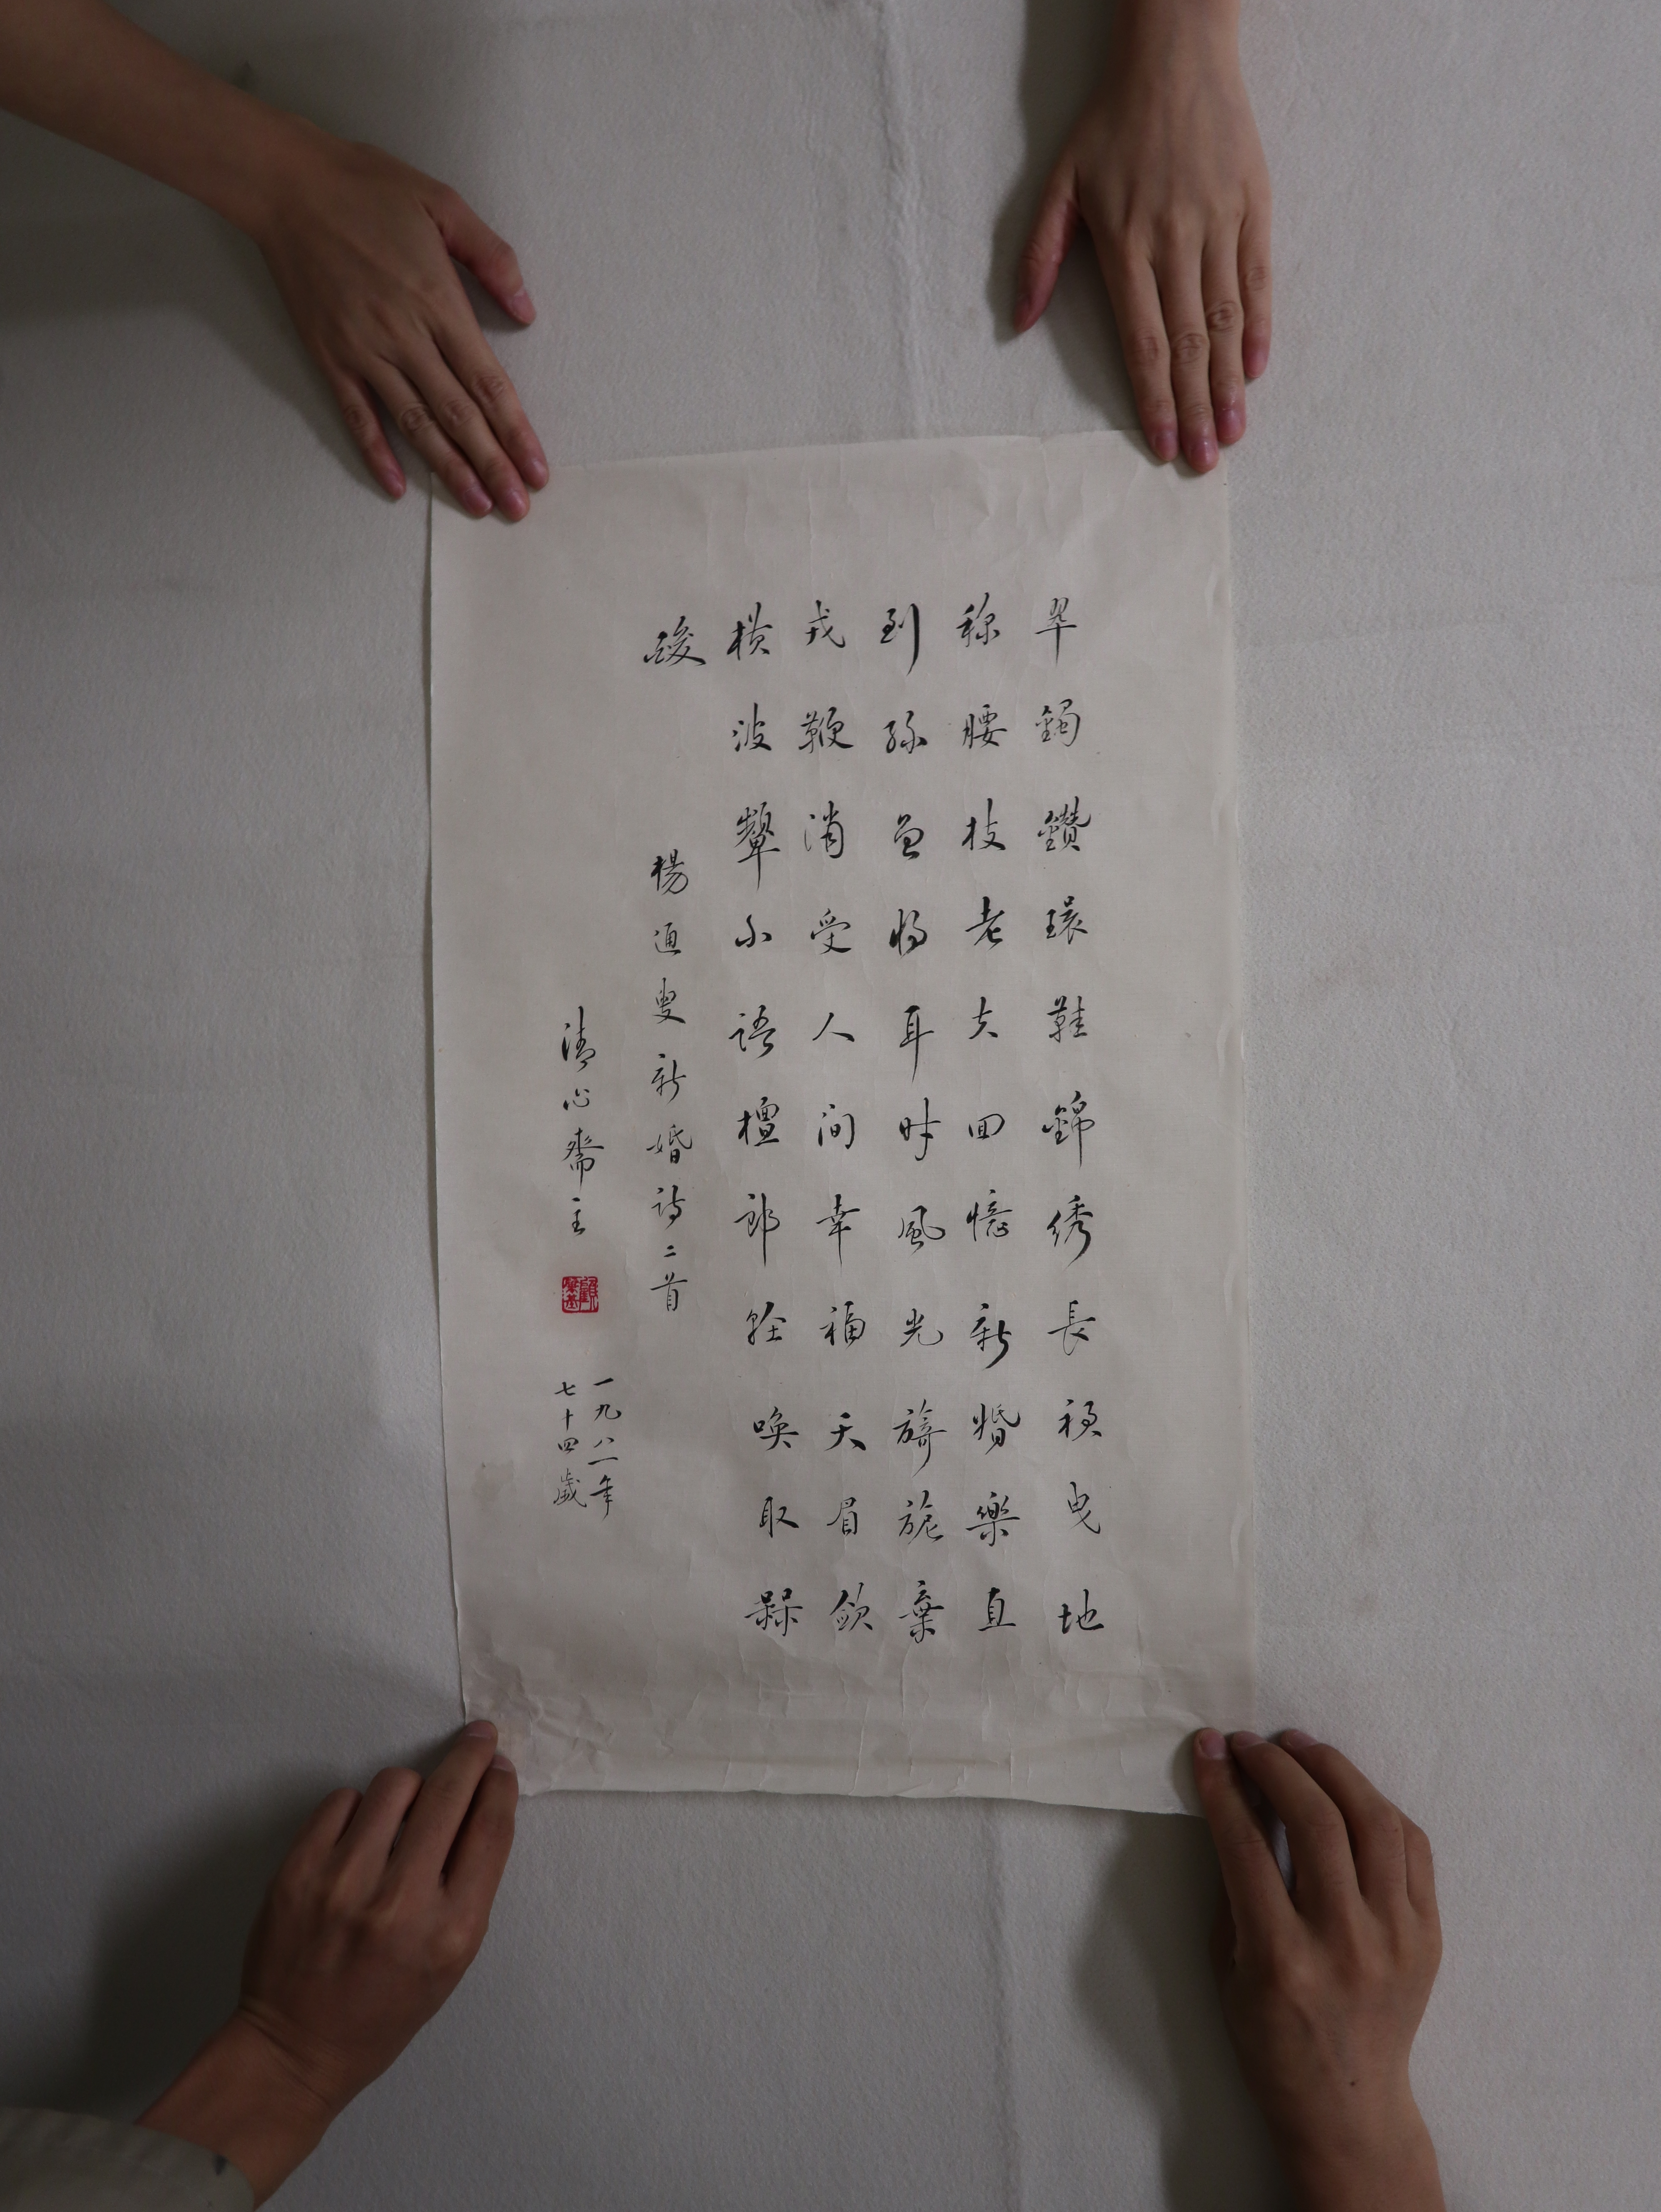 翠鐲鑽環鞋錦綉長曳地
称腰枝老大回憶新婚樂直
到孫曾将耳时風光旖旎棄
戎鞭消受人间幸福天眉歛
横波顰不語檀郎輕喚取槑
酸
楊通叟新婚詩二首
清心齋主
一九八一年
七十四歲